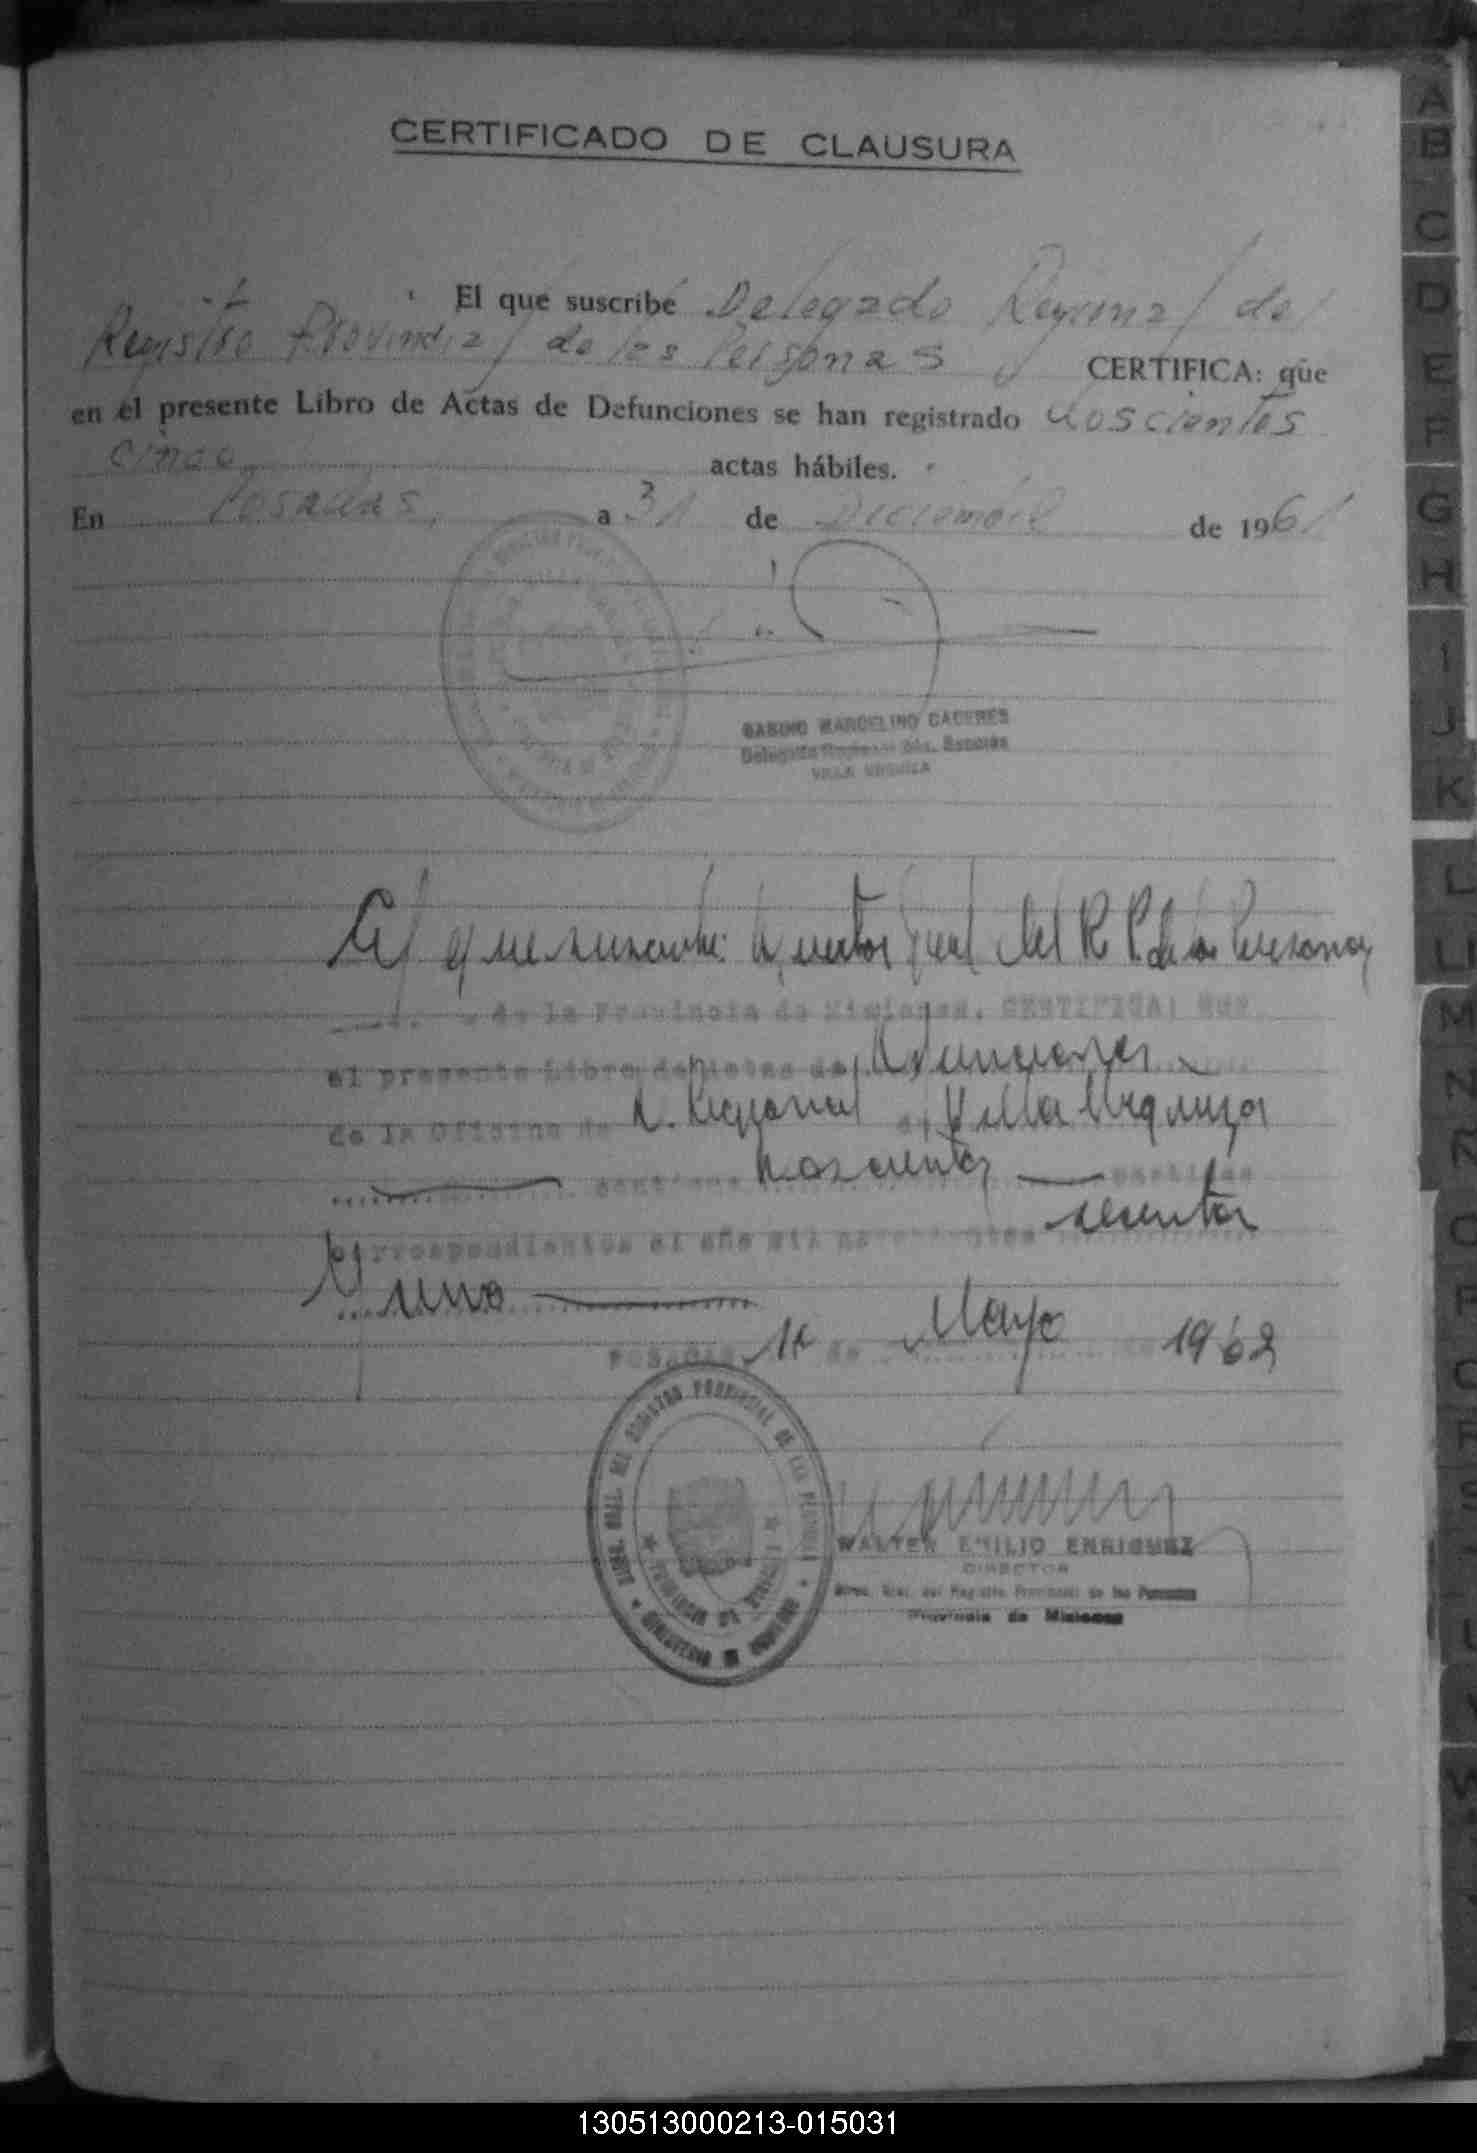 CERTIFICADO DE CLAUSURA
El que suscribe Delegado Regional del
Registro Provincial de las Personas CERTIFICA: que
en el presente Libro de Actas de Defunciones se han registrado doscientos
cinco actas hábiles.
En Posadas, a 31 de Diciembre de 1961
MARCELINO CACERES
Delegado Regional
VILLA URQUIZA
El que suscribe: Director Gral del R. P. de las Personas
de la Provincia de Misiones. CERTIFICA: QUE
el presente Libro de Actas de Defunciones
de la Oficina D. Regional de Villa Urquiza
contiene Doscientos partidas
correspondientes al año mil novecientos sesenta
y uno
POSADAS, de Mayo de 1962
DEL REGISTRO PROVINCIAL DE LAS PERSONAS
MINISTERIO DE GOBIERNO
PROVINCIA DE MISIONES
WALTER EMILIO ENRIQUEZ
DIRECTOR
Direc. Gral. del Registro Provincial de las Personas
Provincia de Misiones
A
B
C
D
E
F
G
H
I
J
K
L
LL
M
N
Ñ
O
P
130513000213-015031